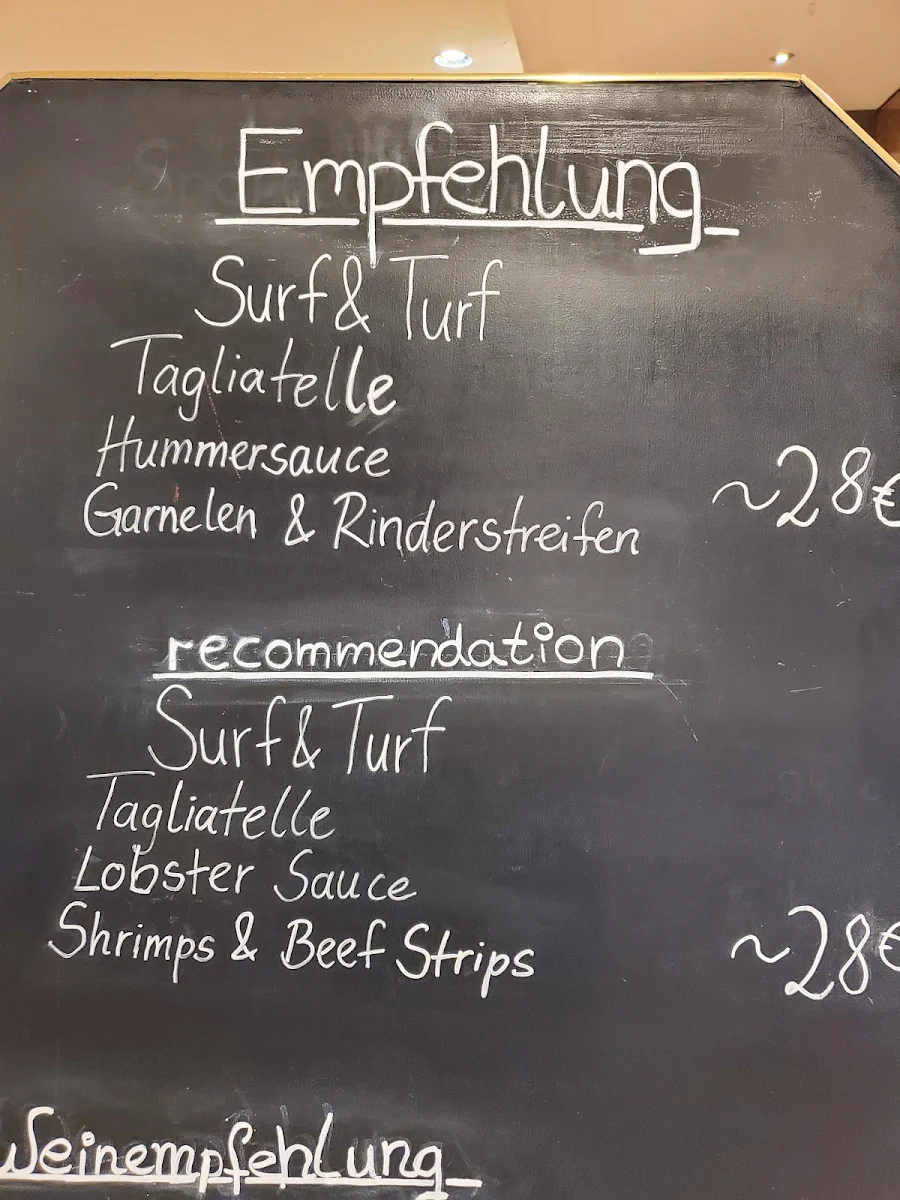 Empfehlung
Surf & Turf
Tagliatelle
Hummersauce
Garnelen & Rinderstreifen
~28€
recommendation
Surf & Turf
Tagliatelle
Lobster Sauce
Shrimps & Beef Strips
~28€
Weinempfehlung